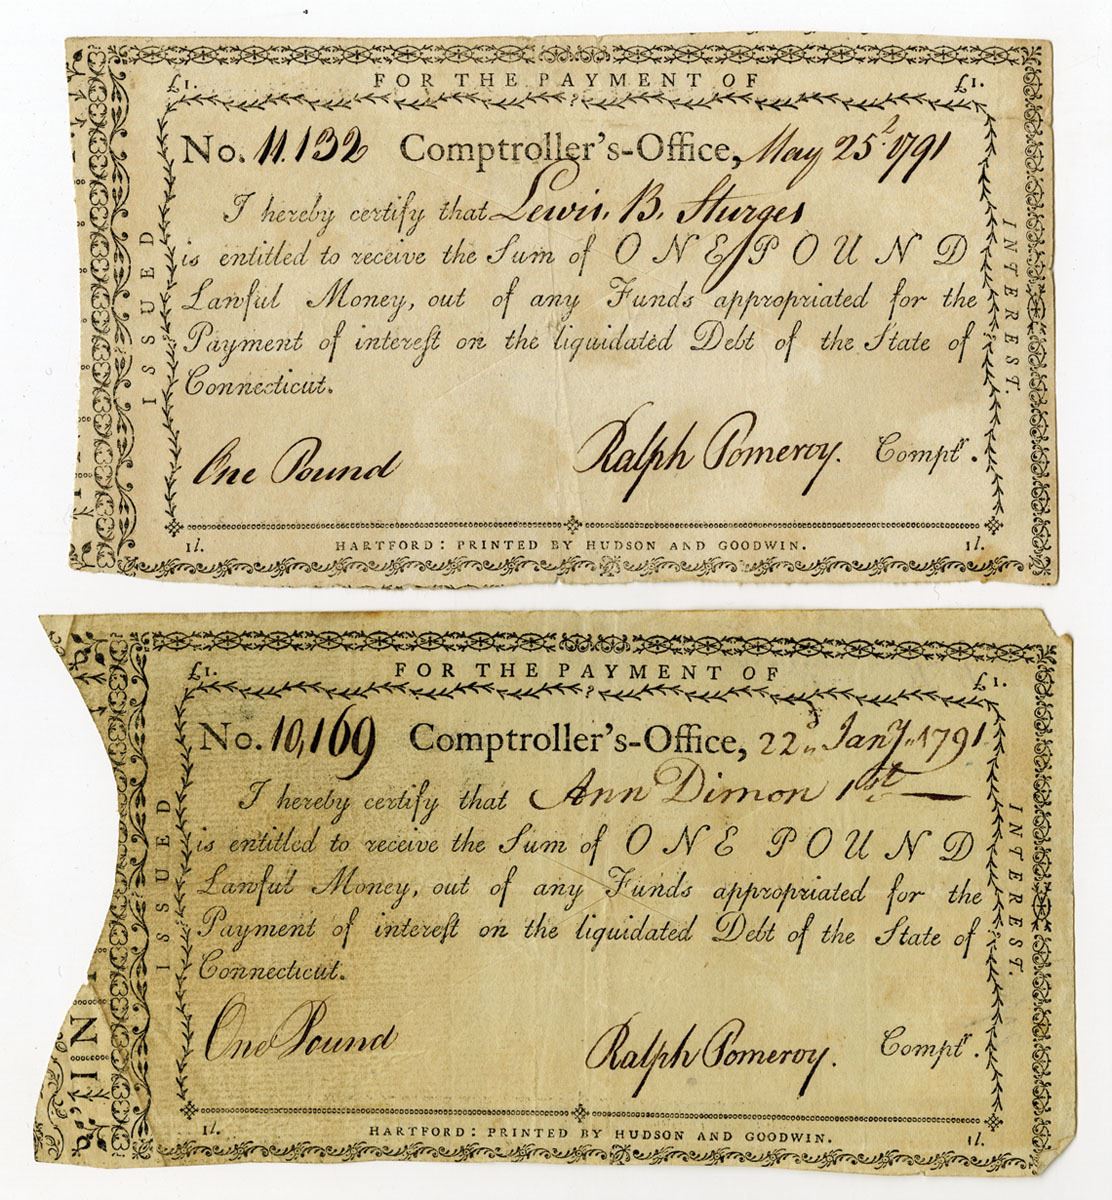 £1. FOR THE PAYMENT OF £1.
No. 11.132 Comptroller's-Office, May 25.ᵗ 1791
I hereby certify that Lewis. B. Sturges
is entitled to receive the Sum of ONE POUND
Lawful Money, out of any Funds appropriated for the
Payment of intereſt on the liquidated Debt of the State of
Connecticut.
One Pound Ralph Pomeroy. Comptr.
1l. HARTFORD: PRINTED BY HUDSON AND GOODWIN. 1l.
ISSUED
INTEREST.
£1. FOR THE PAYMENT OF £1.
No. 10,169 Comptroller's-Office, 22d Jany. 1791
I hereby certify that Ann Dimon 1st
is entitled to receive the Sum of ONE POUND
Lawful Money, out of any Funds appropriated for the
Payment of intereſt on the liquidated Debt of the State of
Connecticut.
One Pound Ralph Pomeroy. Comptr.
1l. HARTFORD: PRINTED BY HUDSON AND GOODWIN. 1l.
ISSUED
INTEREST